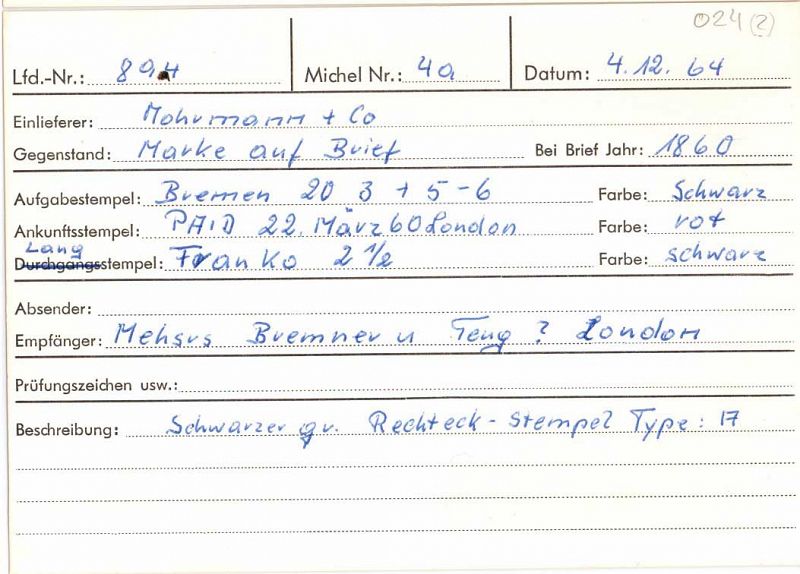 024 (2)
Lfd.-Nr.: 894 Michel Nr.: 4a Datum: 4.12.64
Einlieferer: Mohrmann + Co
Gegenstand: Marke auf Brief Bei Brief Jahr: 1860
Aufgabestempel: Bremen 20 3 + 5-6 Farbe: Schwarz
Ankunftsstempel: PAID 22. März 60 London Farbe: rot
Lang
Durchgangsstempel: Franko 2 1/2 Farbe: schwarz
Absender:
Empfänger: Mehsrs Bremner u Teng ? London
Prüfungszeichen usw.:
Beschreibung: Schwarzer gr. Rechteck-Stempel Type: 17